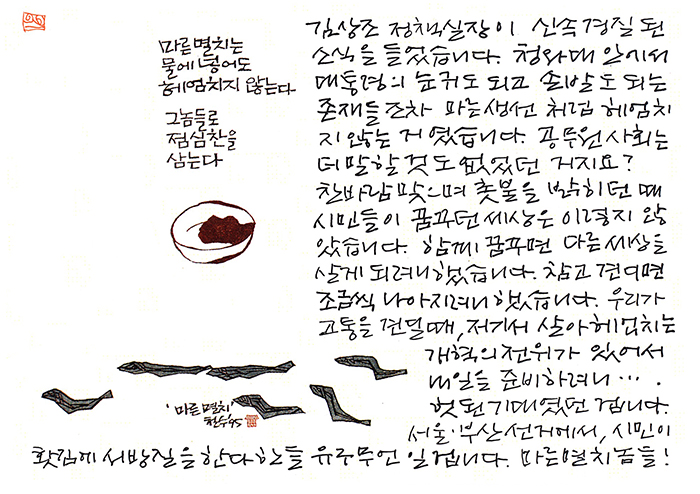 마른멸치는
물에 넣어도
헤엄치지 않는다
그놈들로
점심찬을
삼는다
김상조 정책실장이 신속경질 된
소식을 들었습니다. 청와대 안에서
대통령의 눈귀도 되고 손발도 되는
존재들조차 마른생선 처럼 헤엄치
지 않는 거였습니다. 공무원사회는
더 말할 것도 없었던 거지요?
찬바람 맞으며 촛불을 밝히던 때
시민들이 꿈꾸던 세상은 이렇지 않
았습니다. 함께 꿈꾸면 다른세상을
살게 되려니 했습니다. 참고 견디면
조금씩 나아지려니 했습니다. 우리가
고통을 견딜 때, 저기서 살아헤엄치는
개혁의 전위가 있어서
내일을 준비하려니….
헛된 기대였던 겁니다.
서울·부산 선거에서, 시민이
홧김에 서방질을 한다 한들 유구무언 일겁니다. 마른멸치놈들!
'마른멸치'
철수 95